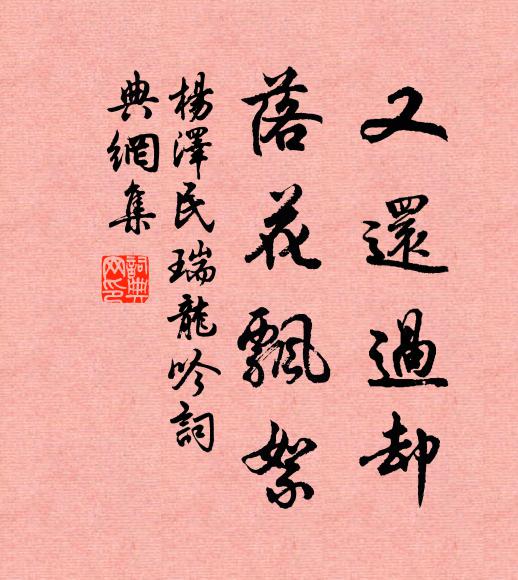 又還過却
落花飄絮
楊澤民瑞龍吟詞
典網集
詞典網印